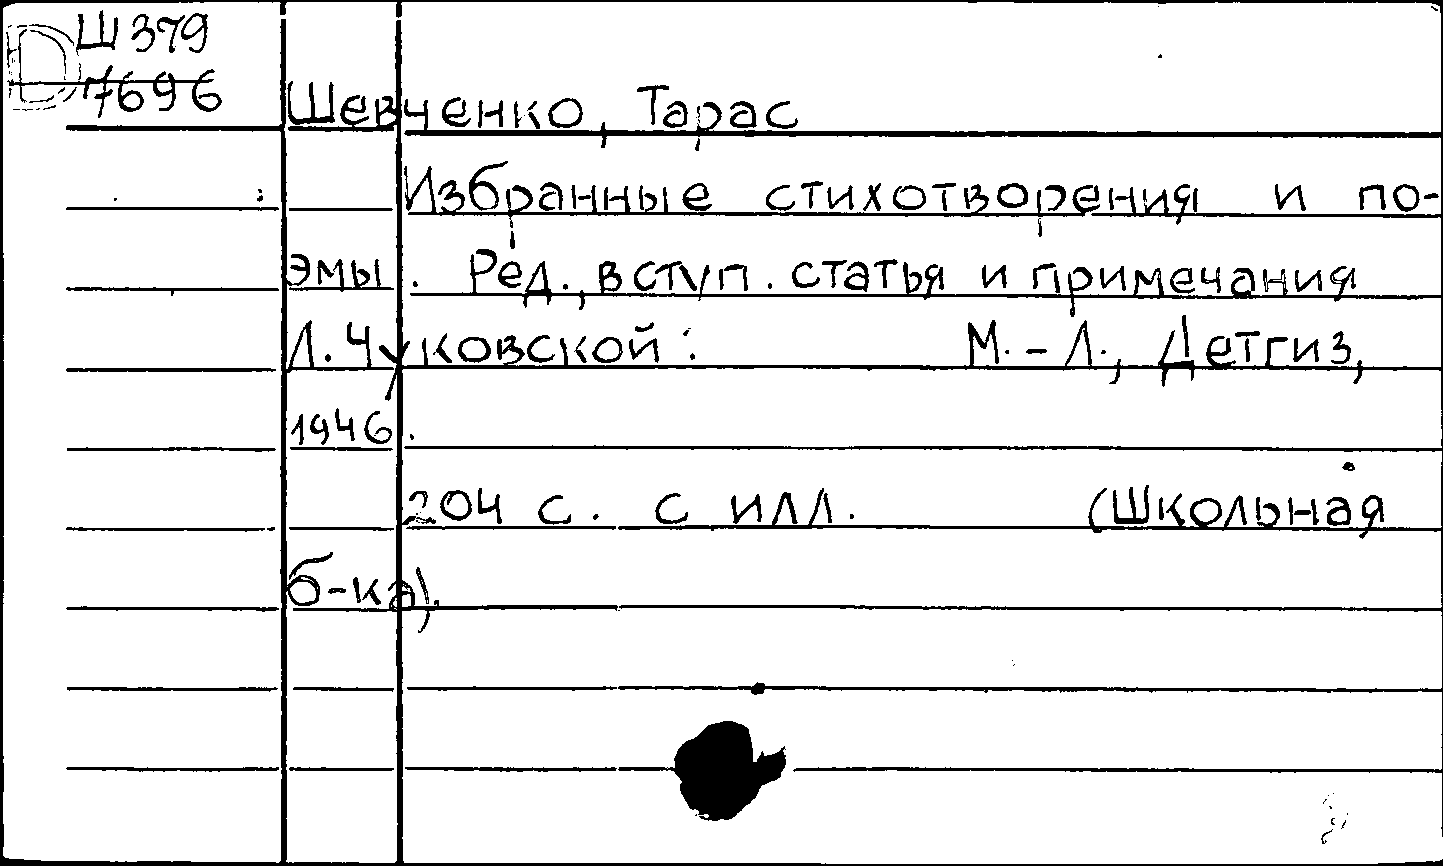 D
Ш379
7696
Шевченко, Тарас
Избранные стихотворения и по-
эмы. Ред., вступ. статья и примечания
Л. Чуковской. М.-Л., Детгиз,
1946.
204 с. с илл. (Школьная
б-ка).